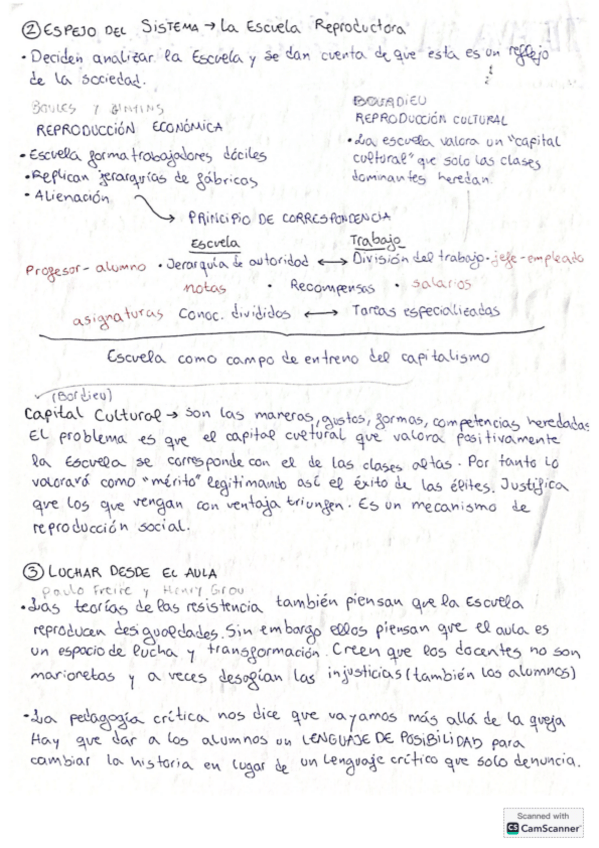 ② ESPEJO DEL SISTEMA → La Escuela Reproductora
• Deciden analizar la Escuela y se dan cuenta de que esta es un reflejo
de la sociedad.
BOULES Y GINTINS
REPRODUCCIÓN ECONÓMICA
• Escuela forma trabajadores dóciles
• Replican jerarquías de fábricas
• Alienación
BOURDIEU
REPRODUCCIÓN CULTURAL
• La escuela valora un "capital
cultural" que solo las clases
dominantes heredan.
→ PRINCIPIO DE CORRESPONDENCIA
Escuela Trabajo
Profesor - alumno • Jerarquía de autoridad ↔ División del trabajo • jefe - empleado
notas • Recompensas • salarios
asignaturas Conoc. divididos ↔ Tareas especializadas
Escuela como campo de entreno del capitalismo
(Bordieu)
Capital Cultural → son las maneras, gustos, formas, competencias heredadas
EL problema es que el capital cultural que valora positivamente
la Escuela se corresponde con el de las clases altas. Por tanto lo
valorará como "mérito" legitimando así el éxito de las élites. Justifica
que los que vengan con ventaja triunfen. Es un mecanismo de
reproducción social.
③ LUCHAR DESDE EL AULA
Paulo Freire y Henry Grou
• Las teorías de las resistencia también piensan que la Escuela
reproducen desigualdades. Sin embargo ellos piensan que el aula es
un espacio de lucha y transformación. Creen que los docentes no son
marionetas y a veces desafían las injusticias (también los alumnos)
• La pedagogía crítica nos dice que vayamos más allá de la queja
Hay que dar a los alumnos un LENGUAJE DE POSIBILIDAD para
cambiar la historia en lugar de un lenguaje crítico que solo denuncia.
Scanned with
CS CamScanner